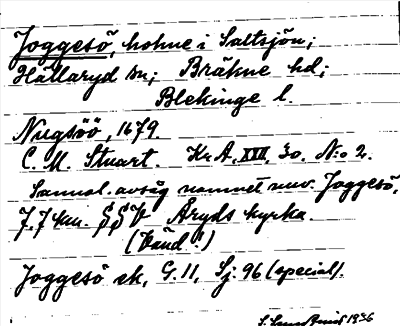 Joggesö, holme i Saltsjön;
Hällaryd sn; Bräkne hd;
Blekinge l.
Nugsöö, 1679.
C. M. Stuart. Kr A, XIII, 30. N:o 2.
Sannol. avsåg namnet nuv. Joggesö,
7,7 km. SSV Åryds kyrka.
(Vänd!)
Joggesö ek, G. 11, Sj. 96 (special).
1936